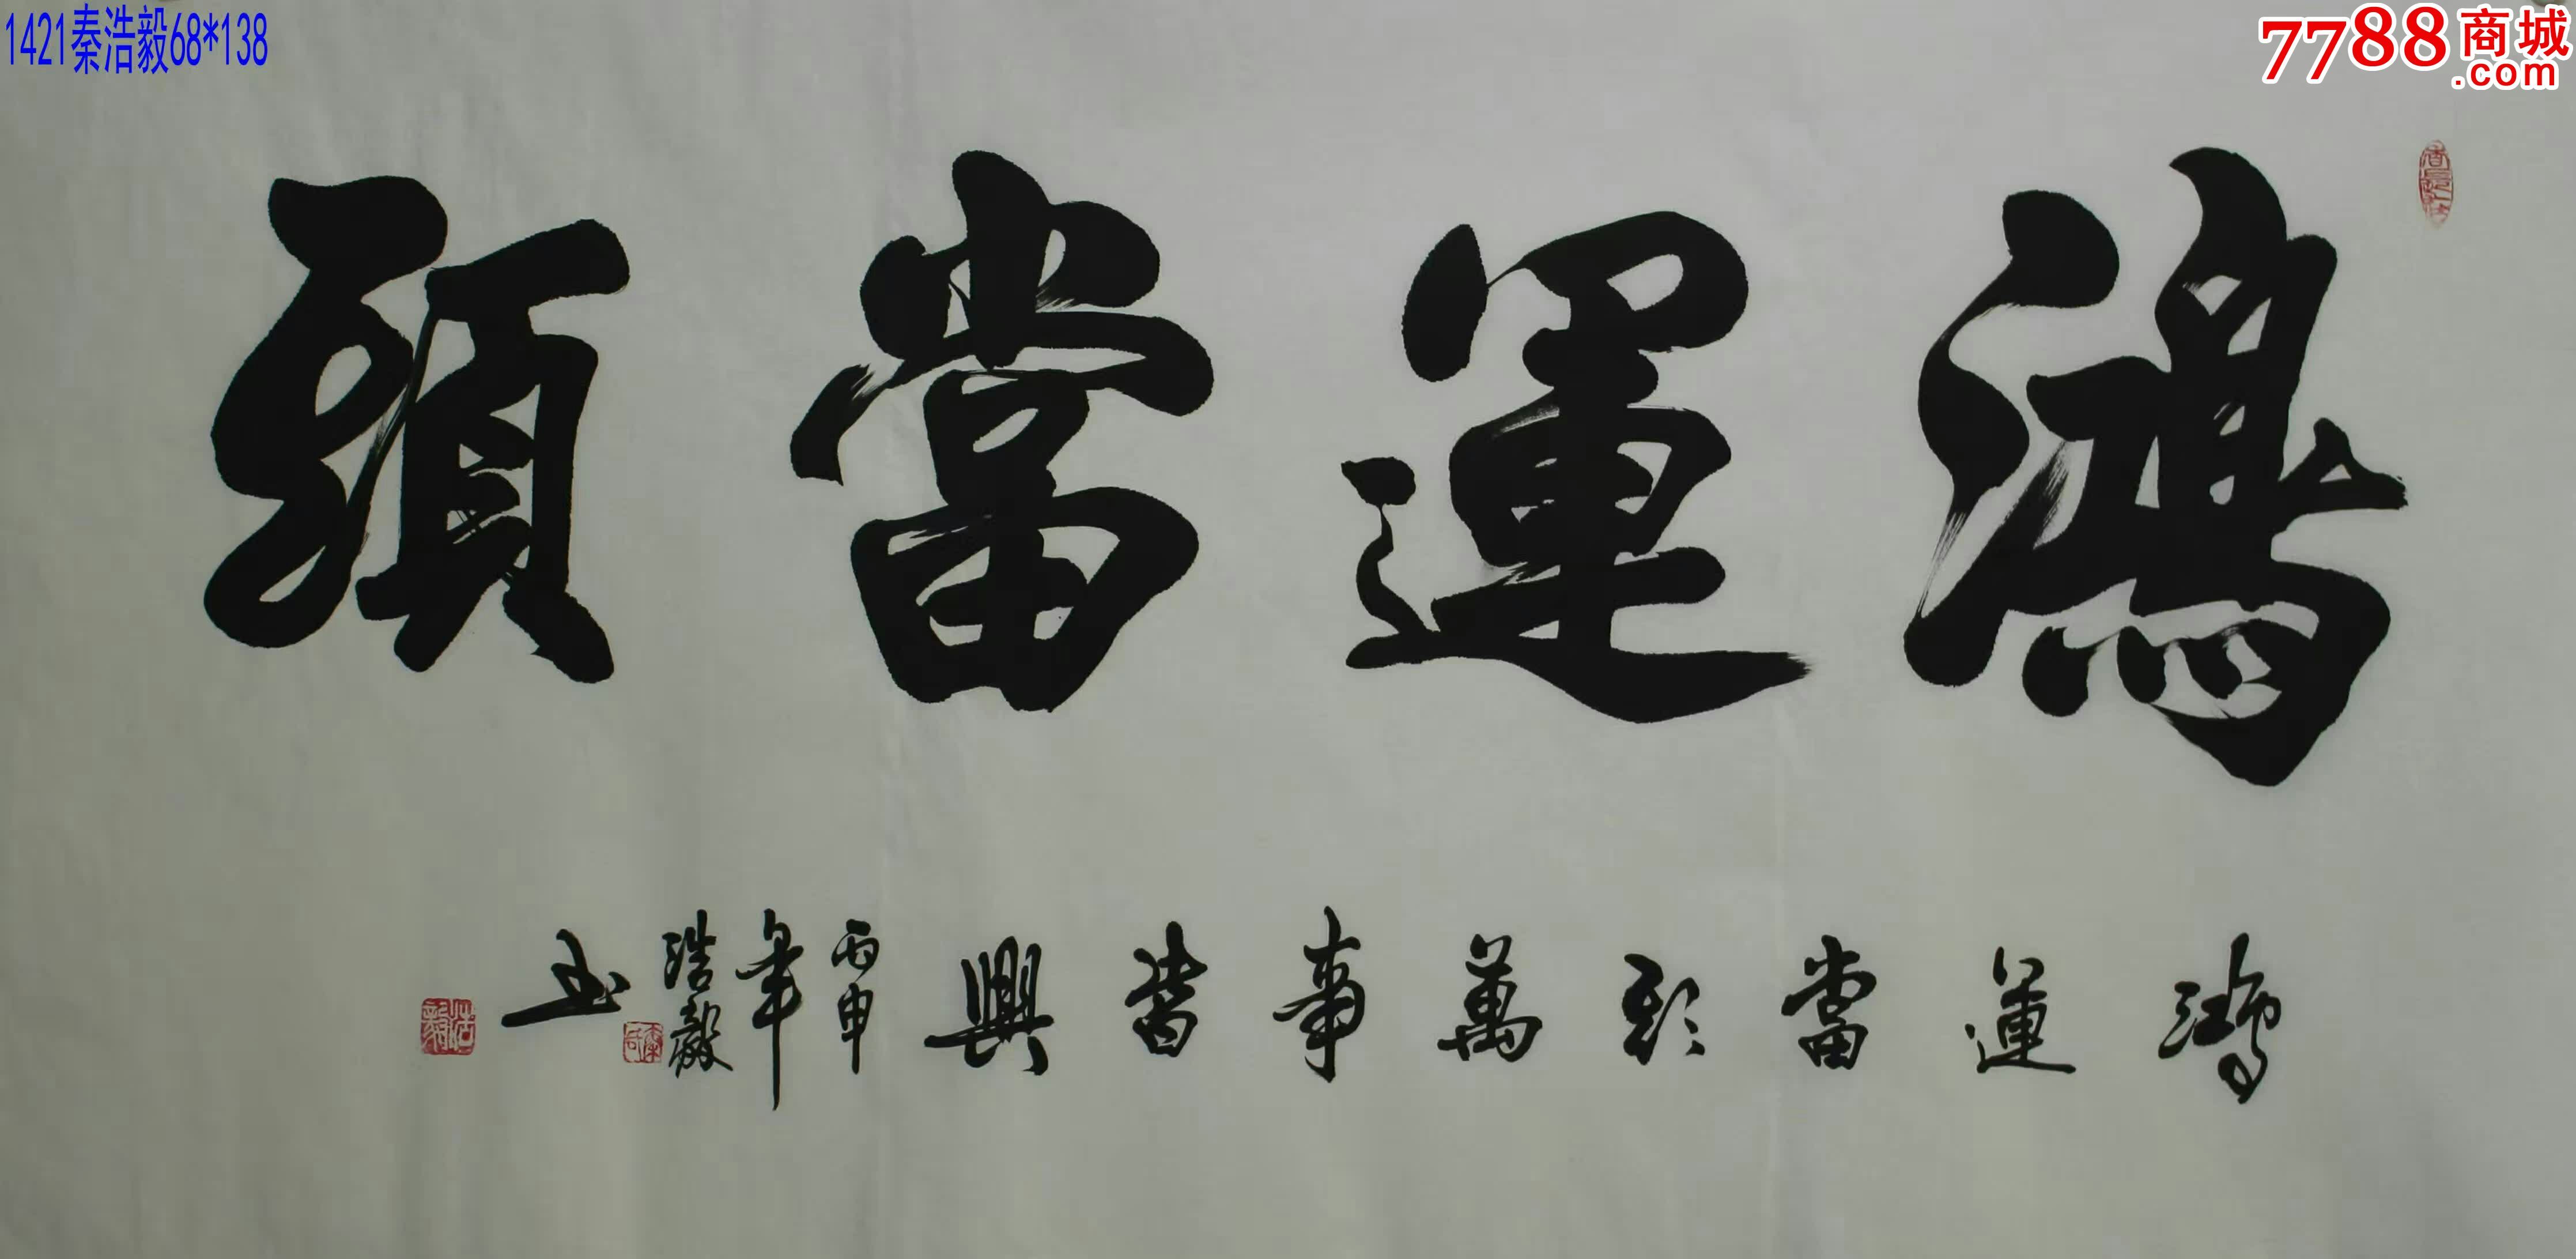 1421秦浩毅68*138
7788商城
.com
鴻運當頭
鴻運當頭萬事皆興
丙申
年
浩毅
书
浩毅